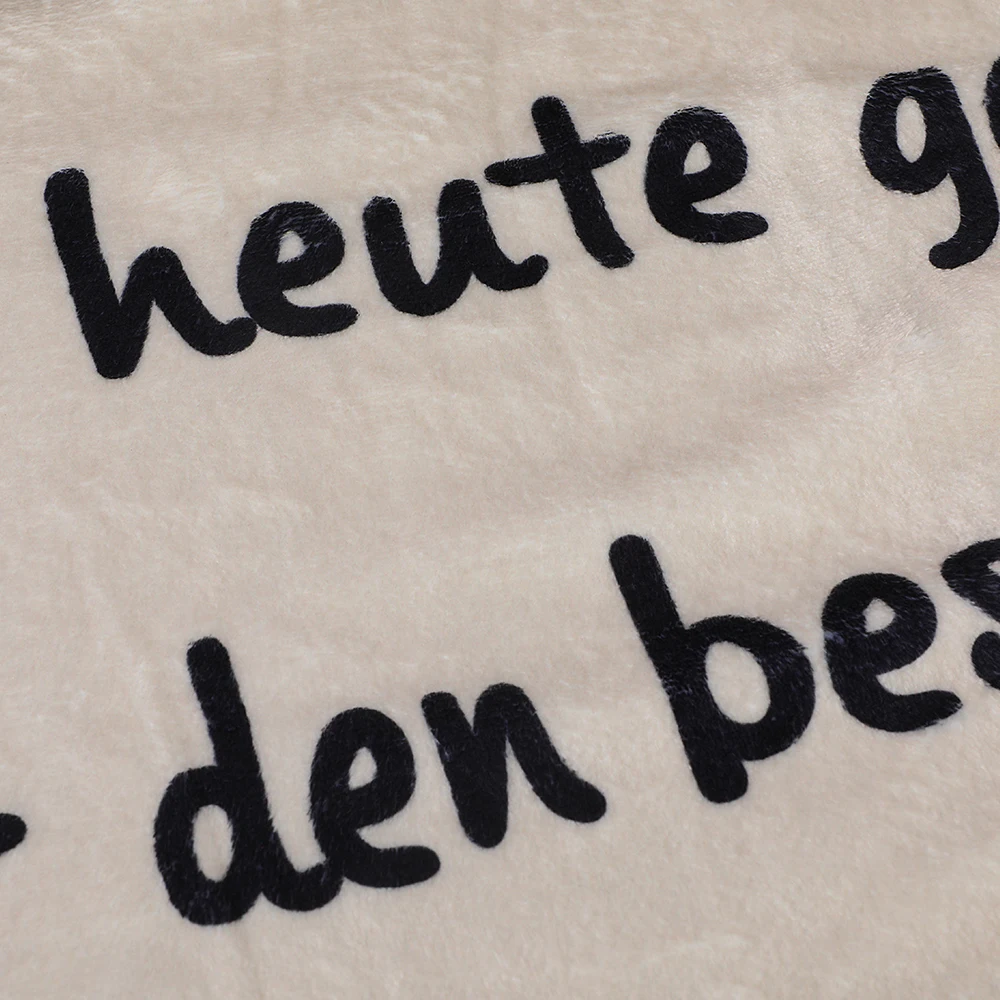 heute ge
den bes